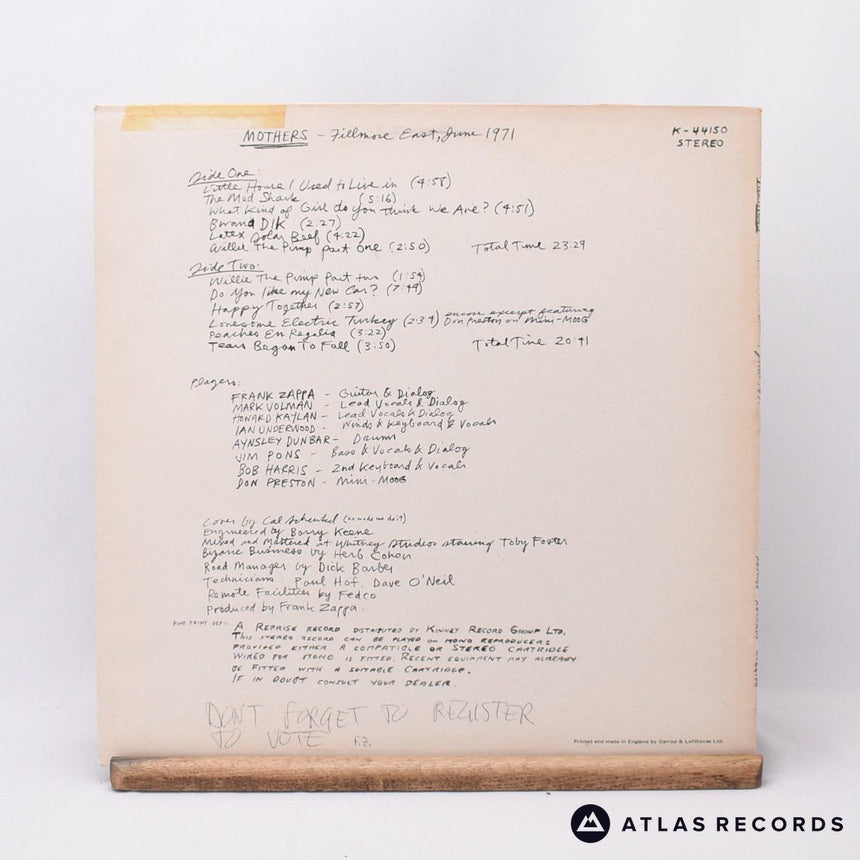 MOTHERS - Fillmore East, June 1971
K-44150
STEREO
Side One:
Little House I Used to Live in (4:58)
The Mud Shark (5:16)
What Kind of Girl do you think we Are? (4:51)
Bwana DIK (2:27)
Latex Solar Beef (4:22)
Willie The Pimp part One (2:50) Total Time 23:29
Side Two:
Willie The Pimp Part two (1:54)
Do You like my New Car? (7:49)
Happy Together (2:57)
Lonesome Electric Turkey (2:34) encore excerpt featuring
Don Preston on Mini-MOOG
Peaches En Regalia (3:22)
Tears Began To Fall (3:50) Total Time 20:41
Players:
FRANK ZAPPA - Guitar & Dialog
MARK VOLMAN - Lead Vocals & Dialog
HOWARD KAYLAN - Lead Vocals & Dialog
IAN UNDERWOOD - Winds & Keyboard & Vocals
AYNSLEY DUNBAR - Drums
JIM PONS - Bass & Vocals & Dialog
BOB HARRIS - 2nd Keyboard & Vocals
DON PRESTON - Mini-MOOG
Cover by Cal Schenkel (he made me do it)
Engineered by Barry Keene
Mixed and Mastered at Whitney Studios starring Toby Foster
Bizarre Business by Herb Cohen
Road Manager by Dick Barber
Technicians: Paul Hof, Dave O'Neil
Remote Facilities by Fedco
Produced by Frank Zappa.
FINE PRINT DEPT: A REPRISE RECORD DISTRIBUTED BY KINNEY RECORD GROUP LTD.
THIS STEREO RECORD CAN BE PLAYED ON MONO REPRODUCERS
PROVIDED EITHER A COMPATIBLE OR STEREO CARTRIDGE
WIRED FOR MONO IS FITTED. RECENT EQUIPMENT MAY ALREADY
BE FITTED WITH A SUITABLE CARTRIDGE.
IF IN DOUBT CONSULT YOUR DEALER.
DON'T FORGET TO REGISTER
TO VOTE F.Z.
Printed and made in England by Garrod & Lofthouse Ltd.
ATLAS RECORDS